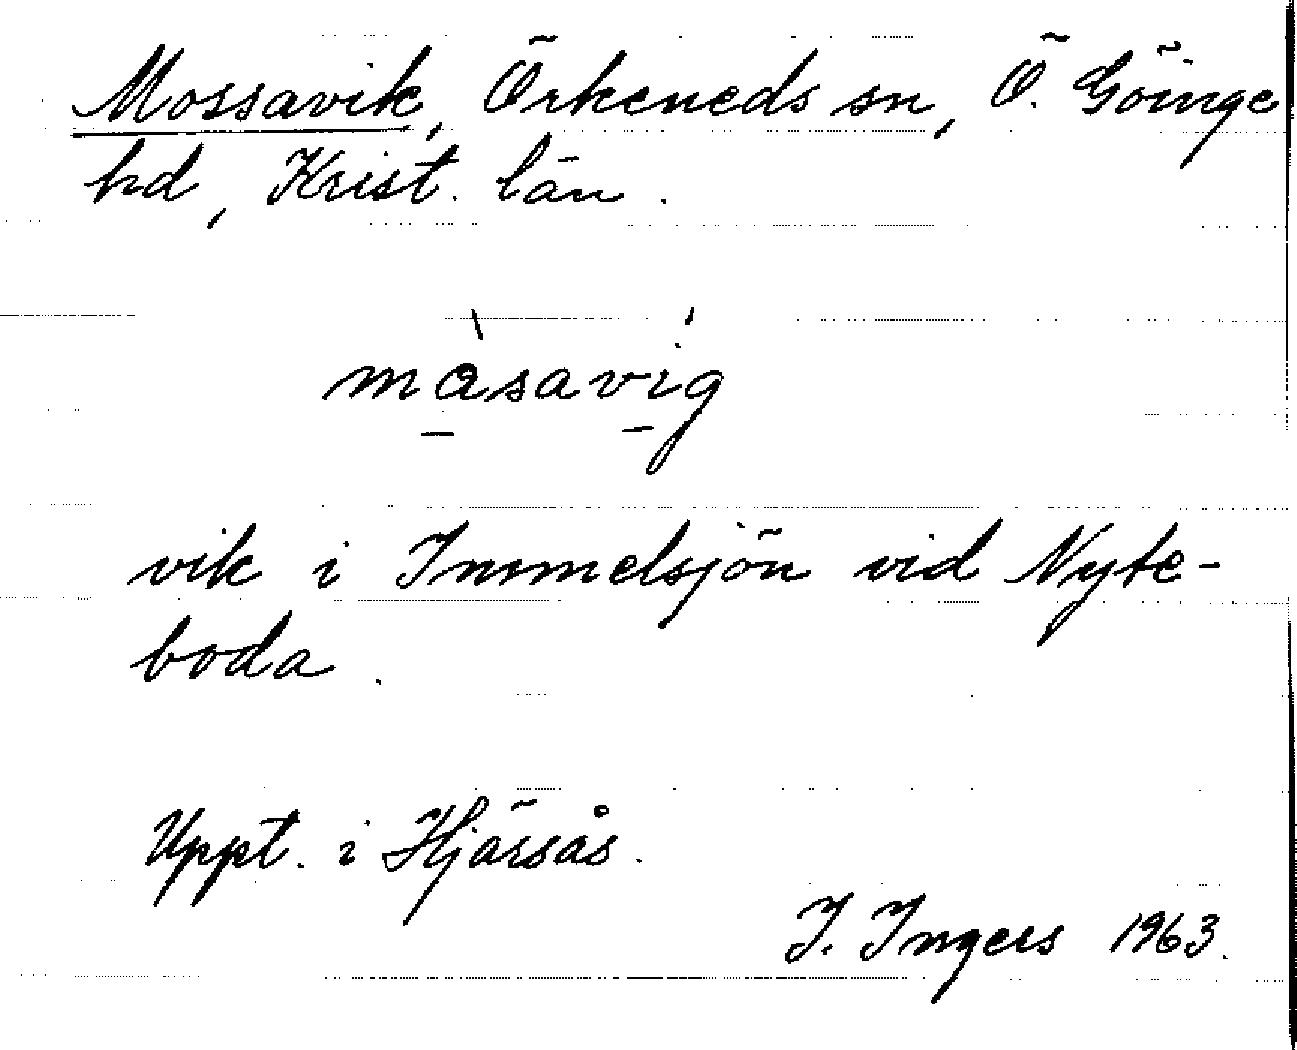 Mossavik, Örkeneds sn, Ö. Göinge
hd, Krist. län.
måsavig
vik i Immelsjön vid Nyte-
boda.
Uppt. i Hjärsås.
I. Ingers 1963.